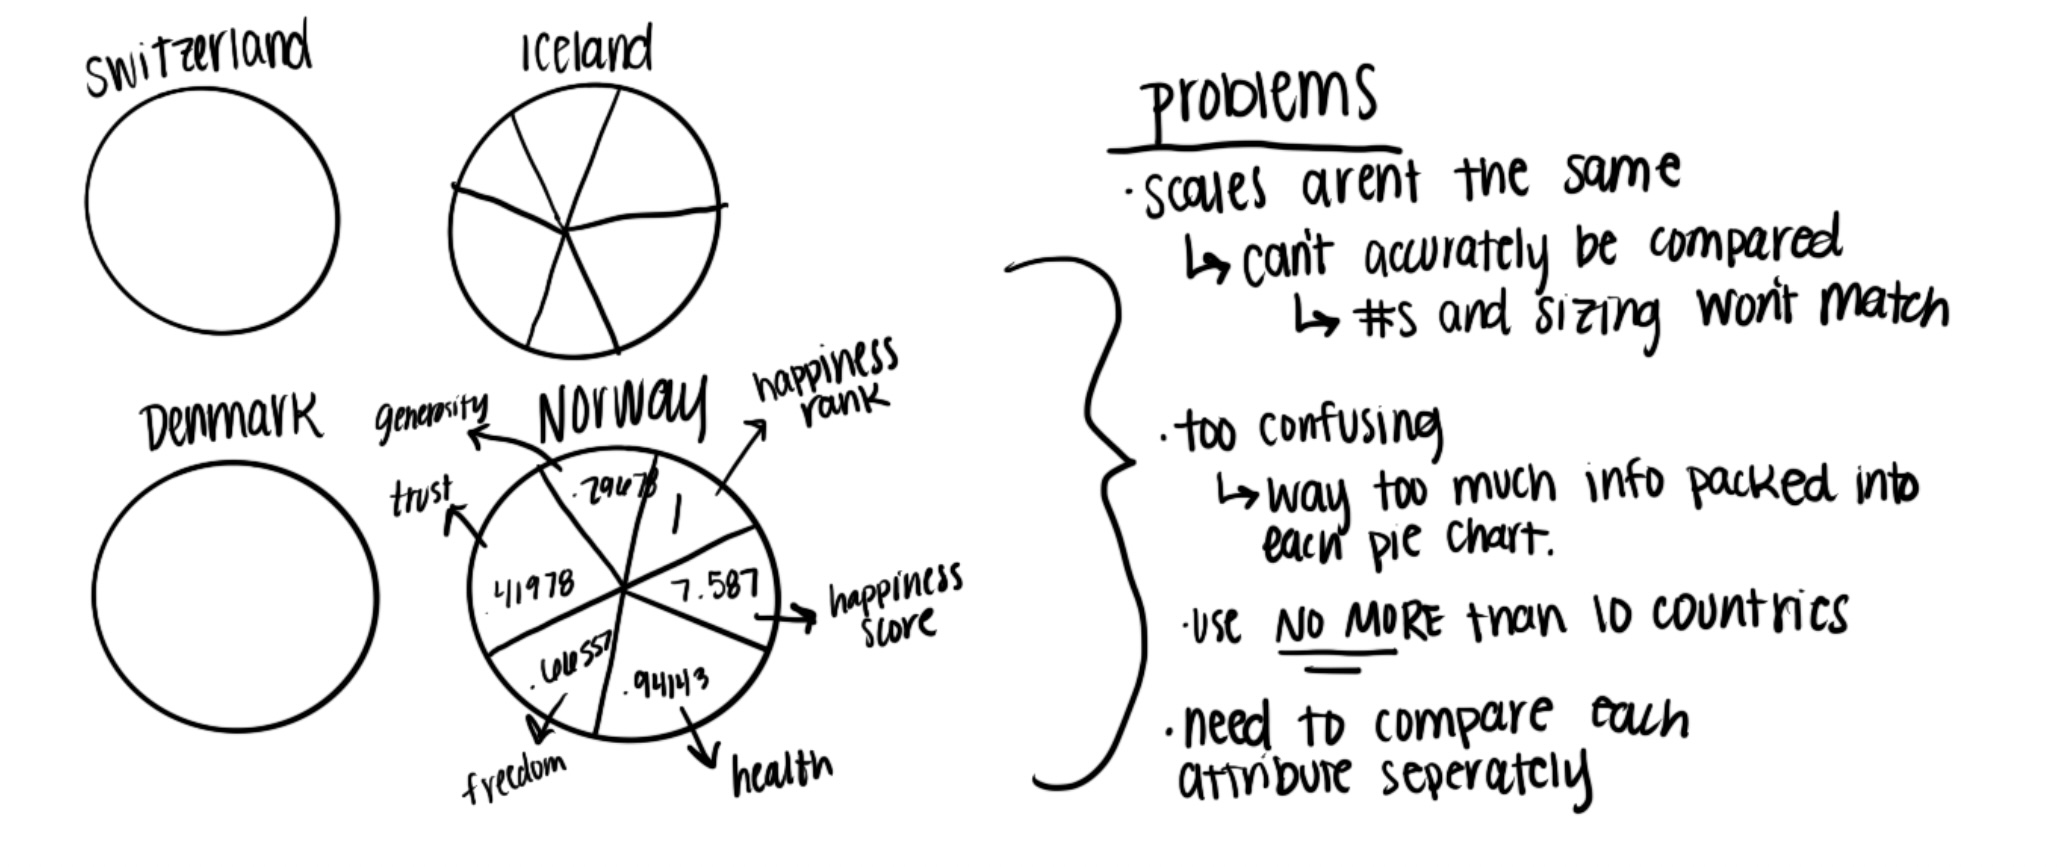 Switzerland
Iceland
Denmark
Norway
generosity
trust
happiness
rank
happiness
score
health
freedom
.29678
1
7.587
.94143
.41978
problems
·scales arent the same
↳ can't accurately be compared
↳ #s and sizing won't match
·too confusing
↳ way too much info packed into
each pie chart.
·use NO MORE than 10 countries
·need to compare each
attribute seperately